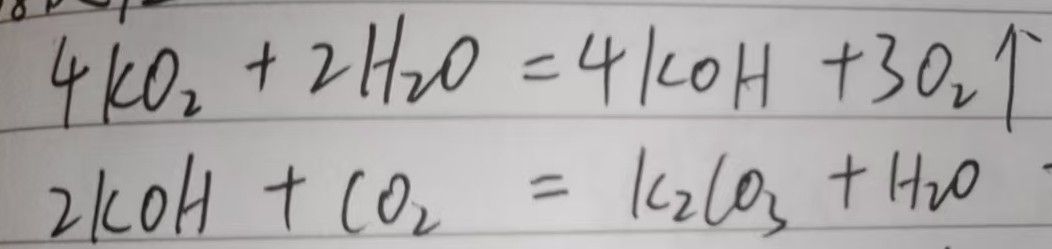 4KO₂ + 2H₂O = 4KOH + 3O₂↑
2KOH + CO₂ = K₂CO₃ + H₂O